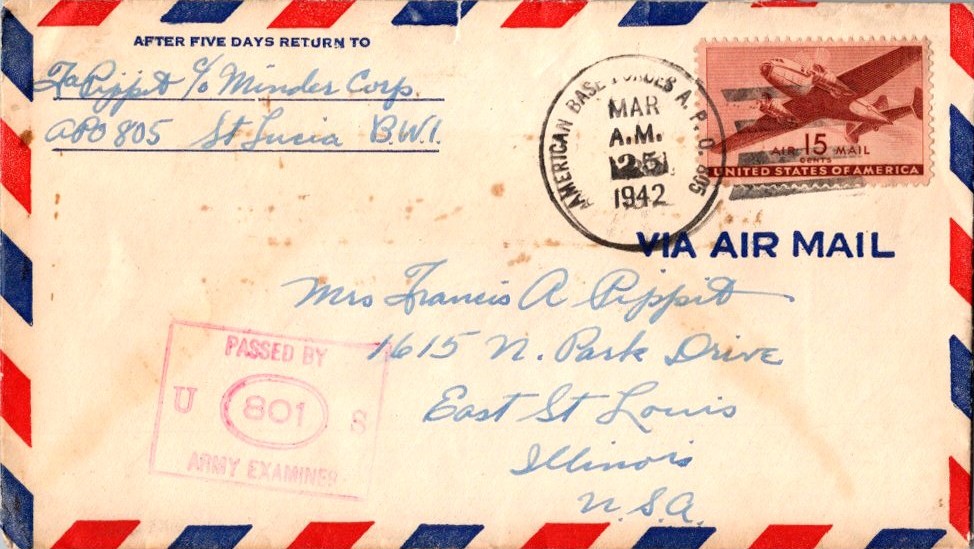 AFTER FIVE DAYS RETURN TO
Pippit c/o Minder Corp.
APO 805 St Lucia B.W.I.
AMERICAN BASE FORCES A. P. O. 805
MAR
A.M.
25
1942
AIR 15 MAIL
CENTS
UNITED STATES OF AMERICA
VIA AIR MAIL
Mrs Francis A Pippit
1615 N. Park Drive
East St Louis
Illinois
U.S.A.
PASSED BY
U 801 S
ARMY EXAMINER